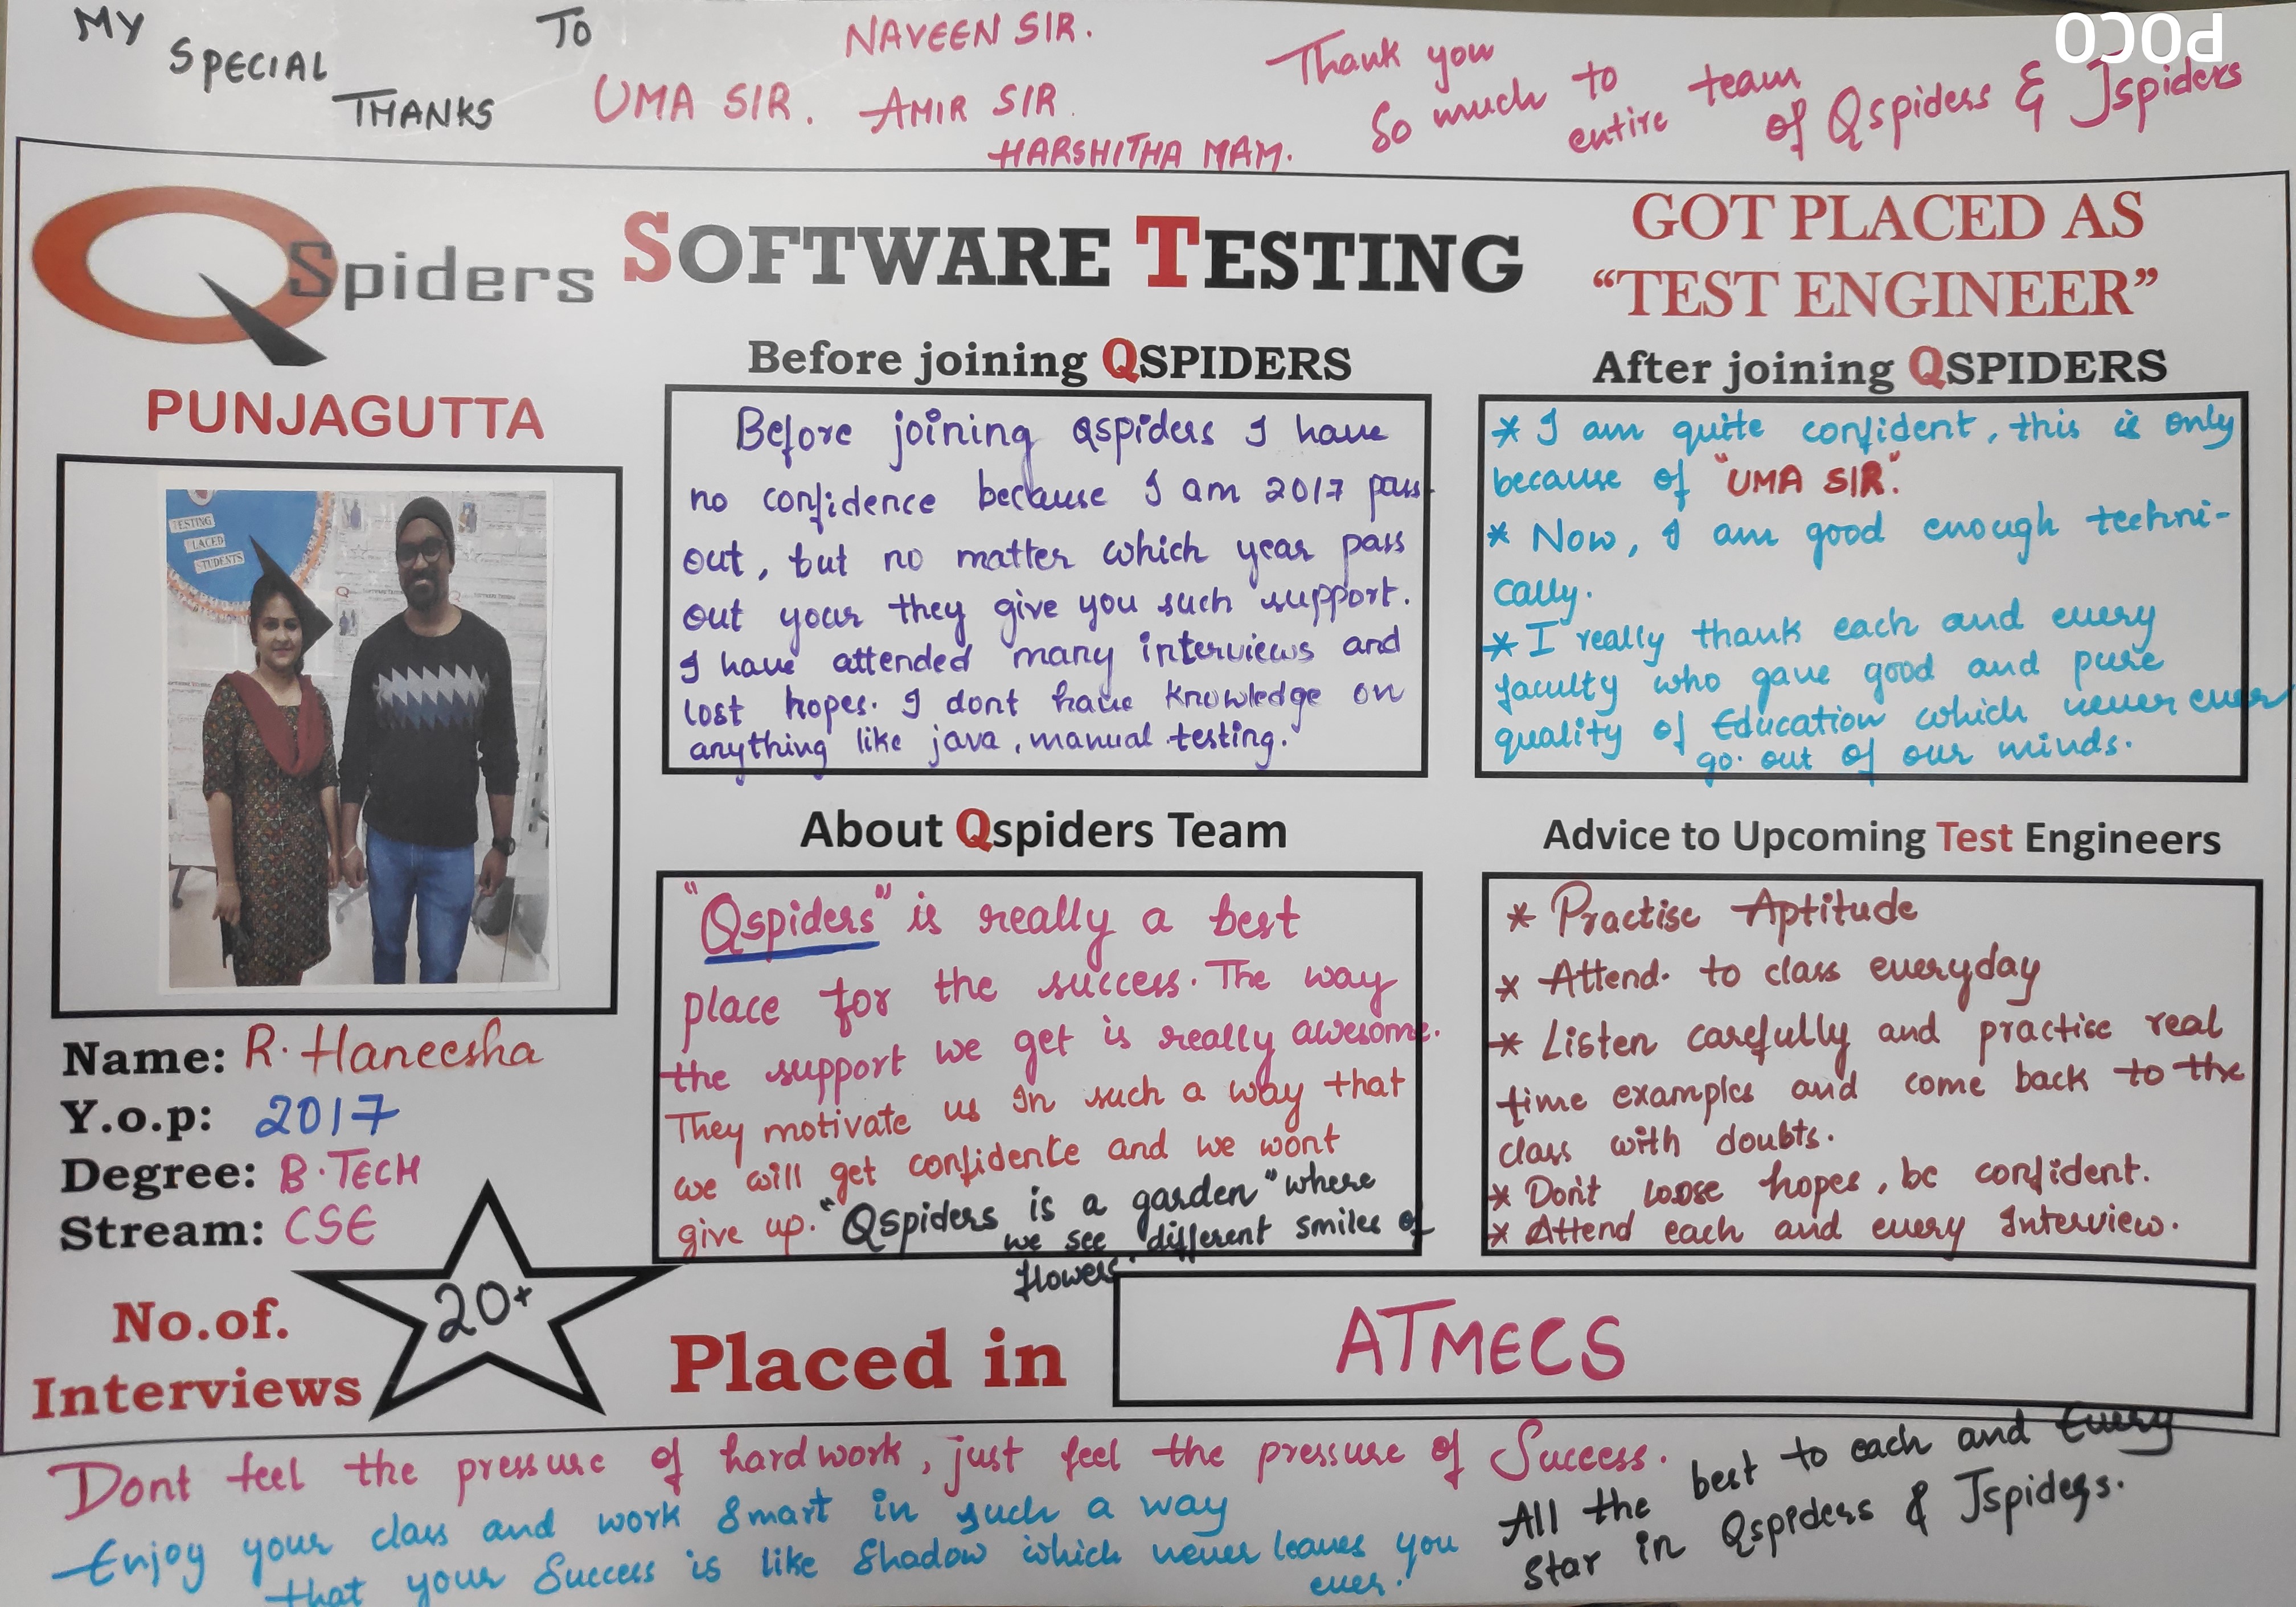 MY SPECIAL THANKS TO
NAVEEN SIR.
UMA SIR. AMIR SIR.
HARSHITHA MAM.
Thank you
So much to
entire team
of Qspiders & Jspiders
POCO
QSpiders
SOFTWARE TESTING
GOT PLACED AS
“TEST ENGINEER”
PUNJAGUTTA
TESTING
PLACED
STUDENTS
Name: R. Haneesha
Y.o.p: 2017
Degree: B.TECH
Stream: CSE
No.of.
Interviews
20+
Before joining QSPIDERS
Before joining Qspiders I have
no confidence because I am 2017 pass
out, but no matter which year pass
out your they give you such support.
I have attended many interviews and
lost hopes. I dont have knowledge on
anything like java, manual testing.
After joining QSPIDERS
* I am quite confident, this is only
because of "UMA SIR."
* Now, I am good enough techni-
cally.
* I really thank each and every
faculty who gave good and pure
quality of Education which never ever
go. out of our minds.
About Qspiders Team
"Qspiders" is really a best
place for the success. The way
the support we get is really awesome.
They motivate us In such a way that
we will get confidence and we wont
give up. "Qspiders is a garden" where
we see different smiles of
flowers.
Advice to Upcoming Test Engineers
* Practise Aptitude
* Attend. to class everyday
* Listen carefully and practise real
time examples and come back to the
class with doubts.
* Don't loose hopes, be confident.
* Attend each and every Interview.
Placed in
ATMECS
Dont feel the pressure of hardwork, just feel the pressure of Success.
Enjoy your class and work Smart in such a way
that your Success is like Shadow which never leaves you
ever.
All the best to each and Every
Star in Qspiders & Jspiders.